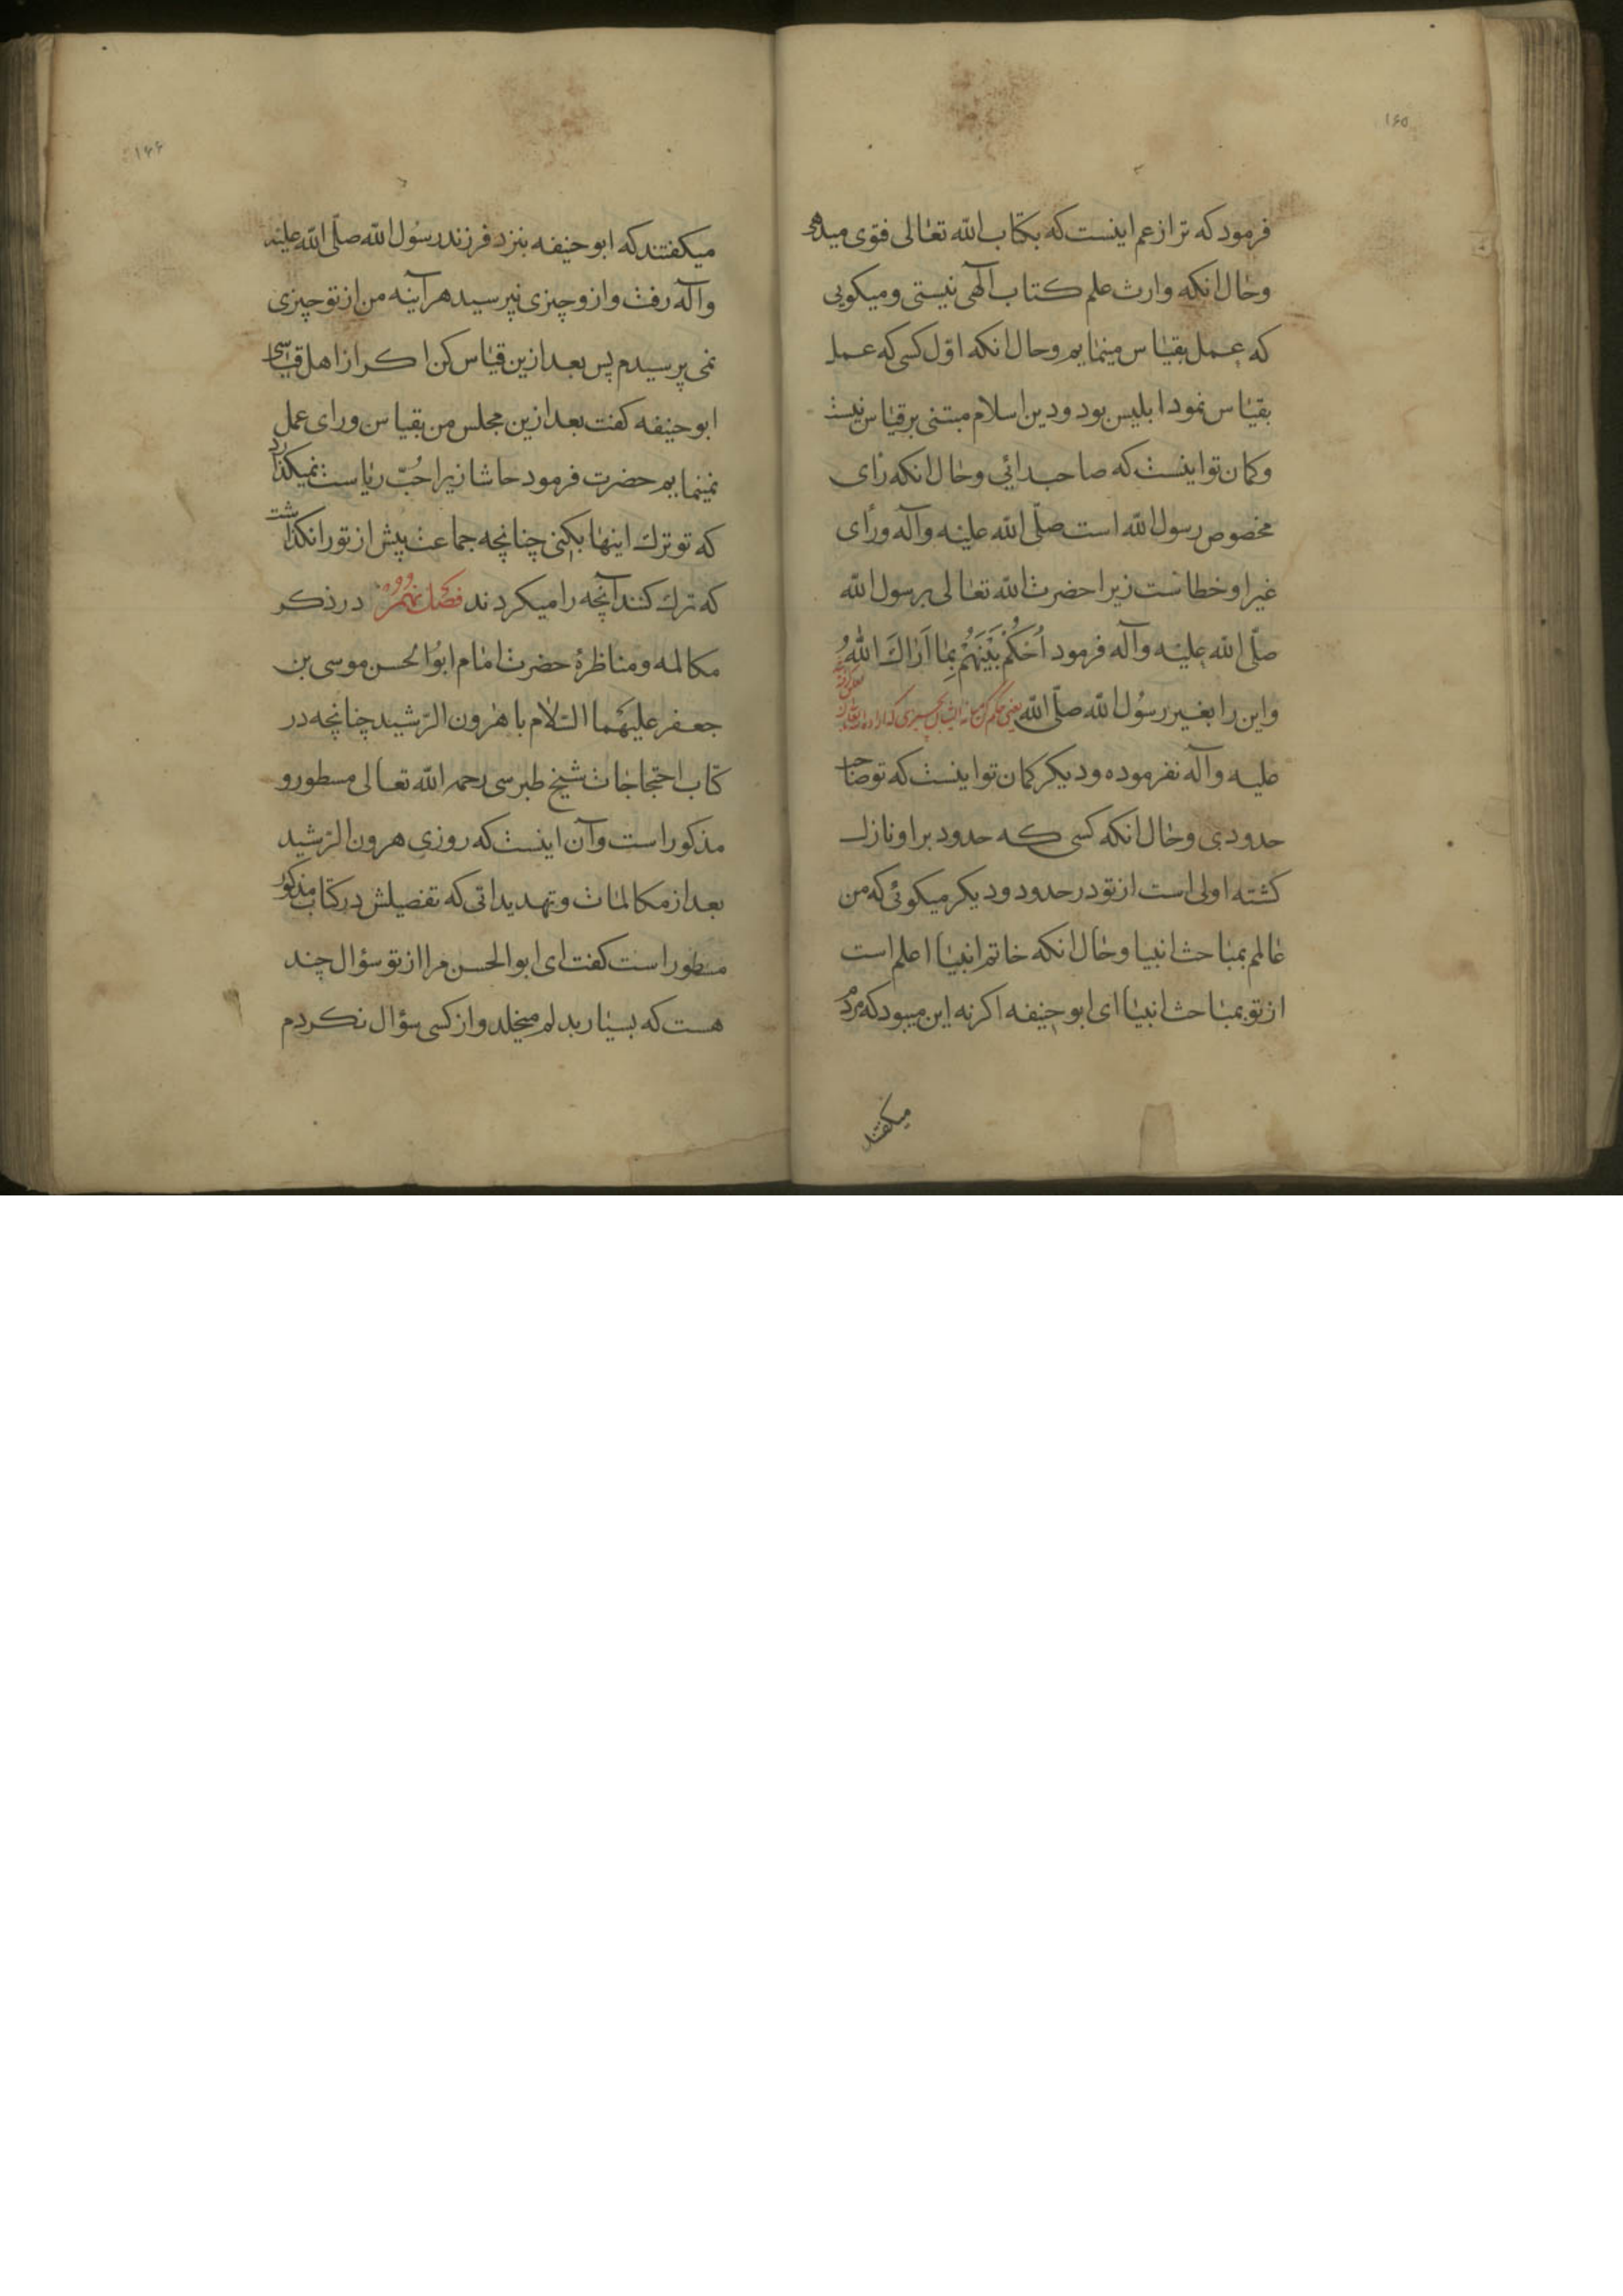 ۱۶۵
فرمود که ترا زعم اینست که بکتاب الله تعالی فتوی میدهی
وحال انکه وارث علم کتاب آلهی نیستی ومیکویی
که عمل بقیاس مینمایم وحال انکه اوّل کسی که عمل
بقیاس نمود ابلیس بود ودین اسلام مبتنی برقیاس نیست
وکمان تو اینست که صاحب رائی وحال انکه رأی
مخصوص رسول الله است صلّی الله علیه وآله ورأی
غیر او خطاست زیرا حضرت الله تعالی برسول الله
صلّی الله علیه وآله فرمود اُحْکُمْ بَیْنَهُمْ بِمَا اَرَاكَ اللّٰهُ
واین را بغیر رسُول الله صلّی الله یعنی حکم کن میانه ایشان بچیزی که
علیه وآله نفرموده ودیکر کمان تو اینست که تو صاحب
حدودی وحال انکه کسی که حدود براو نازل
کشته اولی است از تو در حدود ودیکر میکوئی که من
عالم بمباحث انبیا وحال انکه خاتم انبیا اعلم است
از تو بمباحث انبیا ای ابو حنیفه اکر نه این میبود که مردم
میکفتند
۱۶۶
میکفتند که ابو حنیفه بنزد فرزند رسُول الله صلّی الله علیه
وآله رفت واز و چیزی نپرسید هرآینه من از تو چیزی
نمی پرسیدم پس بعد ازین قیاس کن اکر از اهل قیاسی
ابو حنیفه کفت بعد ازین مجلس من بقیاس ورای عمل
نمینمایم حضرت فرمود حاشا زیرا حُبّ ریاست نمیکذارد
که تو ترك اینها بکنی چنانچه جماعت پیش از تو را نکذاشت
که ترك کنند آنچه را میکردند فصل نهم در ذکر
مکالمه ومناظرهٔ حضرت امام ابوُالحسن موسی بن
جعفر علیهما السّلام با هرون الرّشید چنانچه در
کتاب احتجاجات شیخ طبرسی رحمه الله تعالی مسطور و
مذکور است وآن اینست که روزی هرون الرّشید
بعد از مکالمات وتهدیداتی که تفصیلش در کتاب مذکور
مسطور است کفت ای ابوالحسن مرا از تو سؤال چند
هست که بسیار بدلم میخلد واز کسی سؤال نکردم